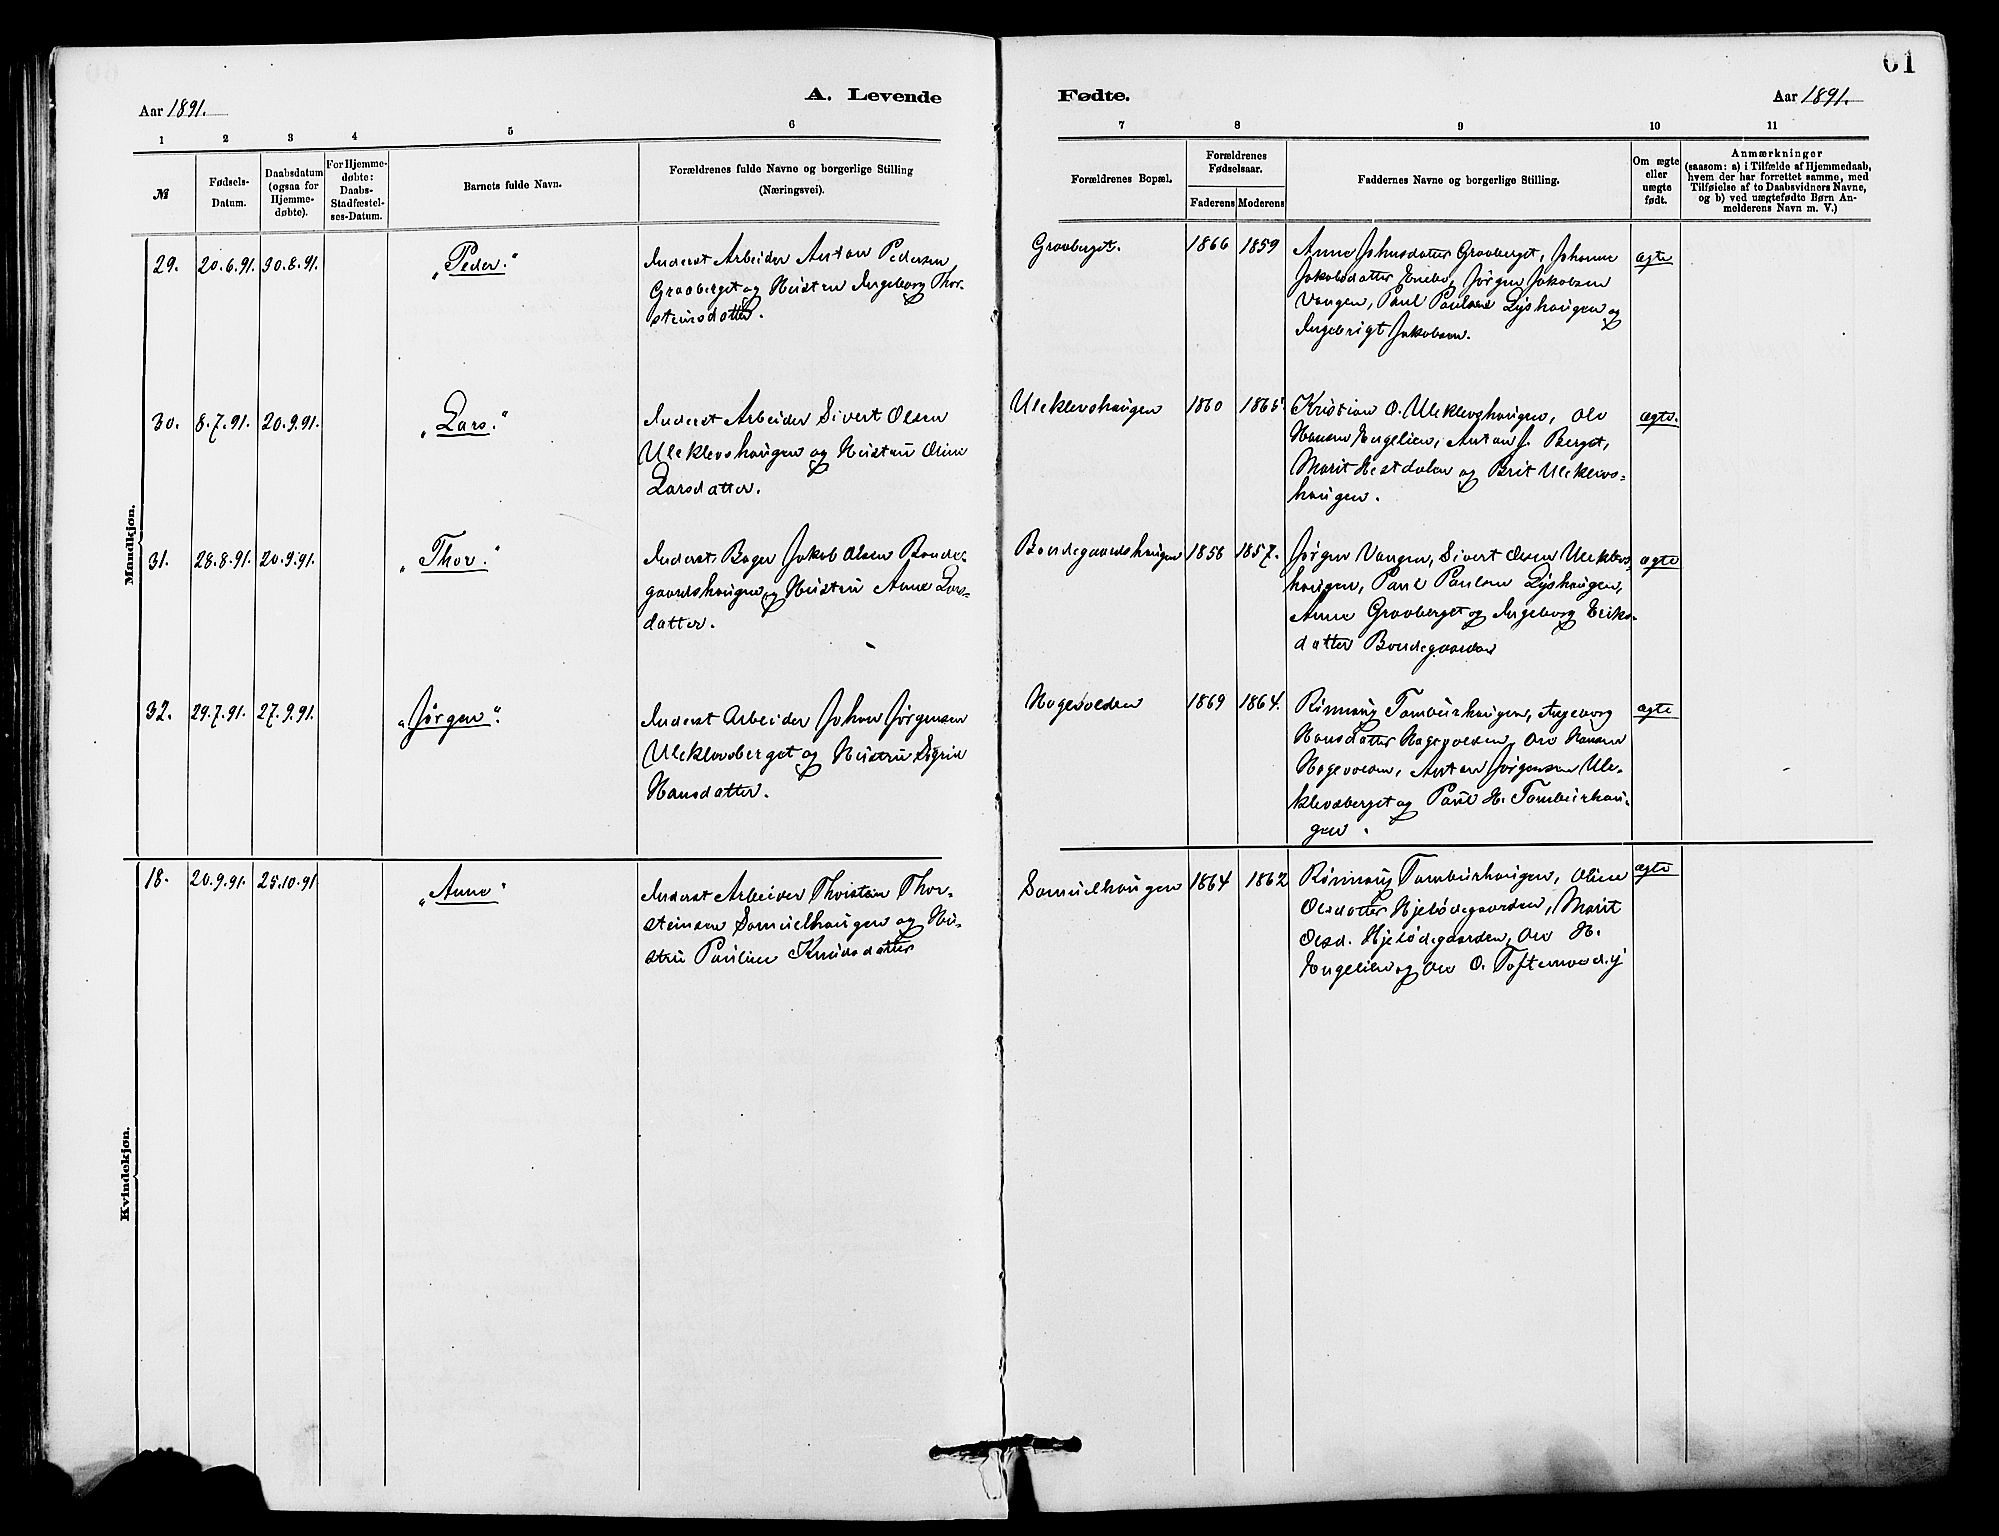 61
Aar 1891.
A. Levende
Fødte.
Aar 1891.
1 2 3 4 5 6 7 8 9 10 11
№
Fødsels-
Datum.
Daabsdatum
(ogsaa for
Hjemme-
døbte).
For Hjemme-
døbte:
Daabs-
Stadfæstel-
ses-Datum.
Barnets fulde Navn.
Forældrenes fulde Navne og borgerlige Stilling
(Næringsvei).
Forældrenes Bopæl.
Forældrenes
Fødselsaar.
Faderens Moderens
Faddernes Navne og borgerlige Stilling.
Om ægte
eller
uægte
født.
Anmærkninger
(saasom: a) i Tilfælde af Hjemmedaab,
hvem der har forrettet samme, med
Tilføielse af to Daabsvidners Navne,
og b) ved uægtefødte Børn An-
melderens Navn m. V.)
Mandkjøn.
29. 20.6.91. 30.8.91. „Peder.“
Inderst Arbeider Anton Pedersen
Graaberget og Hustru Ingeborg Thor-
steinsdatter.
Graaberget. 1866 1859
Anne Johnsdatter Graaberget, Johanne
Jakobsdatter Enebo, Jørgen Jakobsen
Vangen, Paul Paulsen Lyshaugen og
Ingebrigt Jakobsen.
ægte
30. 8.7.91. 20.9.91. „Lars.“
Inderst Arbeider Sivert Olsen
Uleklevshaugen og Hustru Oline
Larsdatter.
Uleklevshaugen 1860 1865
Kristian O. Uleklevshaugen, Ole
Hansen Engelien, Anton J. Berget,
Marit Hestdalen og Brit Uleklevs-
haugen.
ægte.
31. 28.8.91. 20.9.91. „Thor.“
Inderst Bager Jakob Olsen Bonde-
gaardshaugen og Hustru Anne Lars-
datter.
Bondegaardshaugen 1856 1857.
Jørgen Vangen, Sivert Olsen Uleklevs-
haugen, Paul Paulsen Lyshaugen,
Anne Graaberget og Ingeborg Eriks-
datter Bondegaarden
ægte
32. 29.7.91. 27.9.91. „Jørgen“.
Inderst Arbeider Johan Jørgensen
Uleklevsberget og Hustru Sigrid
Hansdatter.
Hagevolden 1869 1864.
Rønnaug Tamburhaugen, Ingeborg
Hansdatter Hagevolden, Ole Hansen
Hagevolden, Anton Jørgensen Ule-
klevsberget og Paul H. Tamburhau-
gen.
ægte
Kvindekjøn.
18. 20.9.91. 25.10.91 „Anne“
Inderst Arbeider Thorstein Thor-
steinsen Samuelhaugen og Hu-
stru Pauline Knudsdatter
Samuelhaugen 1864 1862
Rønnaug Tamburhaugen, Oline
Olsdatter Hjelødegaarden, Marit
Olsd. Hjelødegaarden, Ole H.
Engelien og Ole O.
ægte